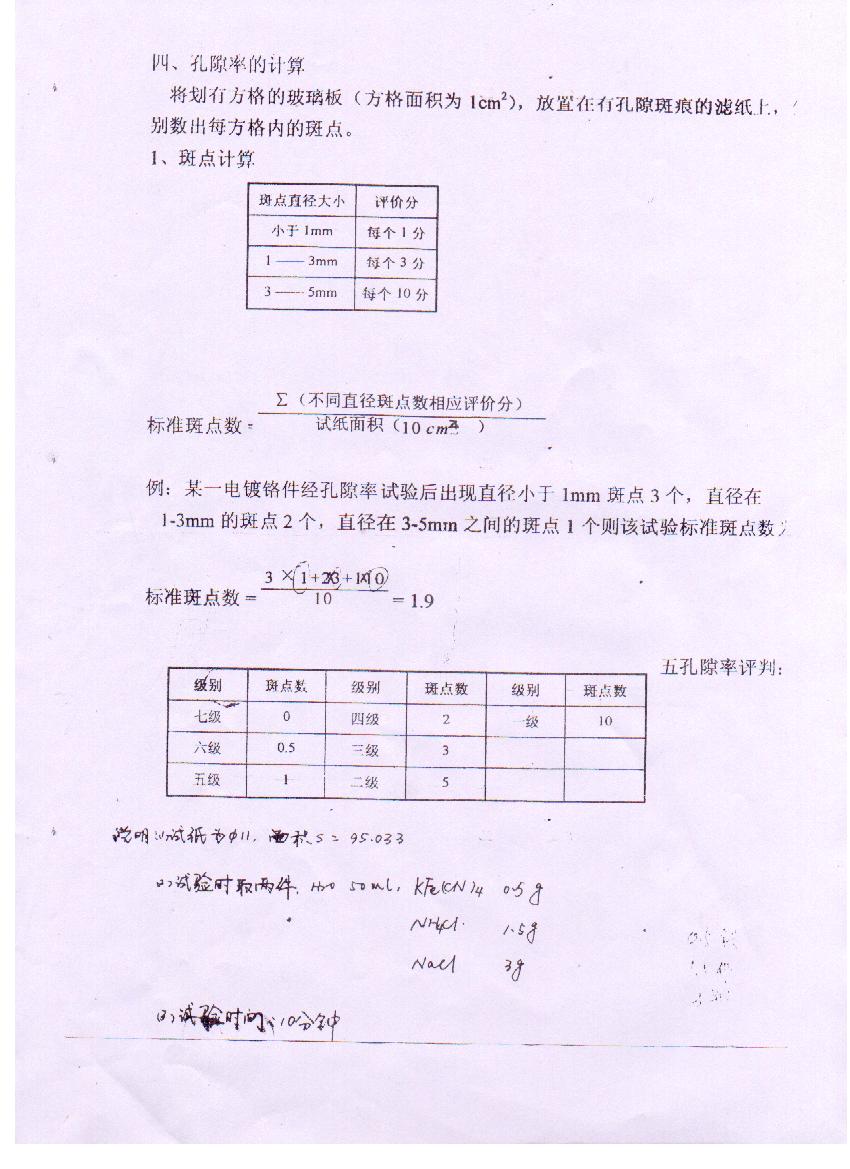 四、孔隙率的计算
将划有方格的玻璃板（方格面积为 1cm²），放置在有孔隙斑痕的滤纸上，
别数出每方格内的斑点。
1、斑点计算
斑点直径大小 评价分
小于 1mm 每个 1 分
1 —— 3mm 每个 3 分
3 —— 5mm 每个 10 分
Σ（不同直径斑点数相应评价分）
标准斑点数 =
试纸面积（10 cm² ）
例：某一电镀铬件经孔隙率试验后出现直径小于 1mm 斑点 3 个，直径在
1-3mm 的斑点 2 个，直径在 3-5mm 之间的斑点 1 个则该试验标准斑点数
3 ×1+2×3+1×10
标准斑点数 = = 1.9
10
五孔隙率评判：
级别 斑点数 级别 斑点数 级别 斑点数
七级 0 四级 2 一级 10
六级 0.5 三级 3
五级 1 二级 5
说明 (1)试纸为φ11，面积 S = 95.033
(2)试验时取两件，H2O 50ml，KFe(CN)4 0.5g
NH4Cl 1.5g
NaCl 3g
试验时间：10分钟